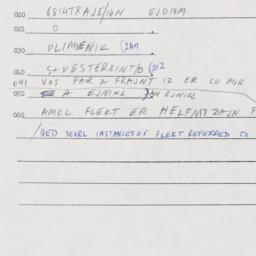 020 6814TRAJE/14N EJD14M
021 0
030 PLIMENIK (241
040 S+VESTERKINT/D (212
041 VOS FAR A FRAJNT IZ ER CU MIR
050 A EJNIKL EJNIKL
060 AMOL FLEKT ER HELFN ZAJN F
/QED SEVRL INSTANCES OF FLEKT REFERRED TO